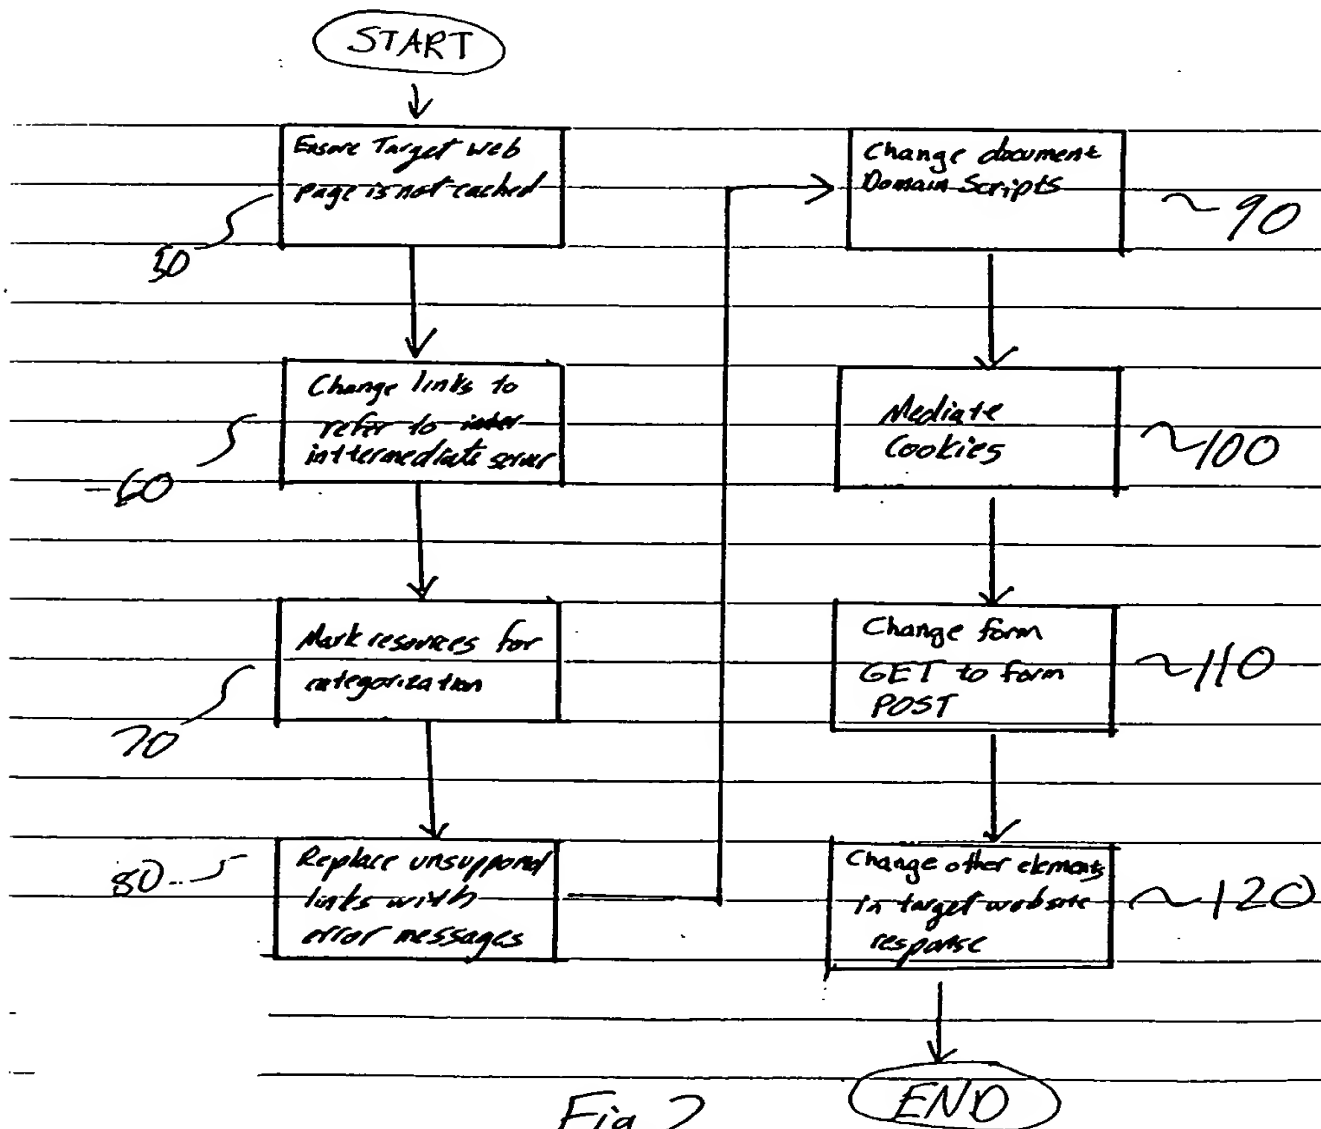 START
Ensure Target web
page is not cached
50
Change links to
refer to inter
inttermediate server
60
Mark resources for
categorization
70
Replace unsupported
links with
error messages
80
Change document
Domain Scripts
~90
Mediate
Cookies
~100
Change form
GET to form
POST
~110
Change other elements
in target website
response
~120
END
Fig 2